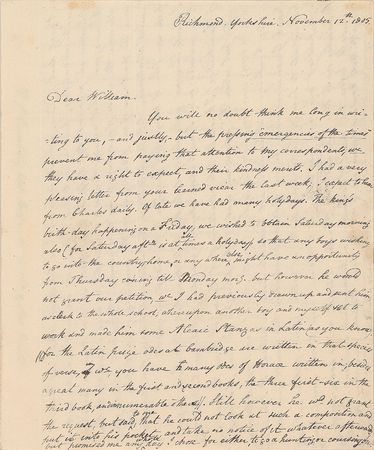 Richmond. Yorkshire. November 12th. 1805
Dear William.
You will no doubt think me long in wri-
-ting to you, - and justly, - but the pressing emergencies of the times
prevent me from paying that attention to my correspondents, wh
they have a right to expect, and their kindness merits. I had a very
pleasing letter from your learned vicar the last week, I expect to hear
from Charles daily. Of late we have had many holydays. The king's
birth-day happening on a Friday, we wished to obtain Saturday morning
also (for Saturday aftn is at all times a holyday) so that any boys wishing
to go into the country home, or any where else, might have an opportunity
from Thursday evening till Monday morng. but however he would
not grant our petition, wh I had previously drawn up and sent him
as clerk to the whole school, whereupon another boy and myself set to
work and made him some Alcaic Stanzas in Latin, as you know
for the Latin prize odes at Cambridge are written in that species
of verse, & wh you have to many odes of Horace written in, besides
a great many in the first and second books, the three first - six in the
third book, and innumerable others. Still however he wd not grant
the request, but said, that he could not look at such a composition and
put it into his pocket and take no notice of it whatever afterward
but promised me any day I chose for either, to go a hunting or coursing